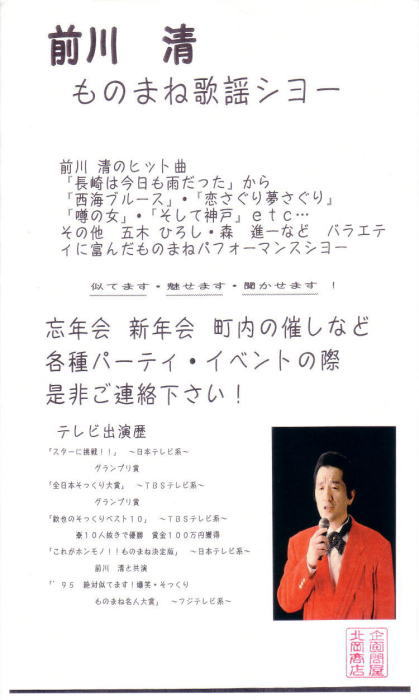 前川　清
ものまね歌謡シヨー
前川 清のヒット曲
「長崎は今日も雨だった」から
「西海ブルース」・「恋さぐり夢さぐり」
「噂の女」・「そして神戸」ｅｔｃ…
その他　五木 ひろし・森　進一など　バラエテ
ィに富んだものまねパフォーマンスシヨー
似てます・魅せます・聞かせます ！
忘年会　新年会　町内の催しなど
各種パーティ・イベントの際
是非ご連絡下さい！
テレビ出演歴
「スターに挑戦！！」　～日本テレビ系～
グランプリ賞
「全日本そっくり大賞」　～ＴＢＳテレビ系～
グランプリ賞
「欽也のそっくりベスト１０」　～ＴＢＳテレビ系～
１０人抜きで優勝　賞金１００万円獲得
「これがホンモノ！！ものまね決定版」　～日本テレビ系～
前川　清と共演
「’９５　絶対似てます！爆笑・そっくり
ものまね名人大賞」　～フジテレビ系～
企画問屋
北岡商店